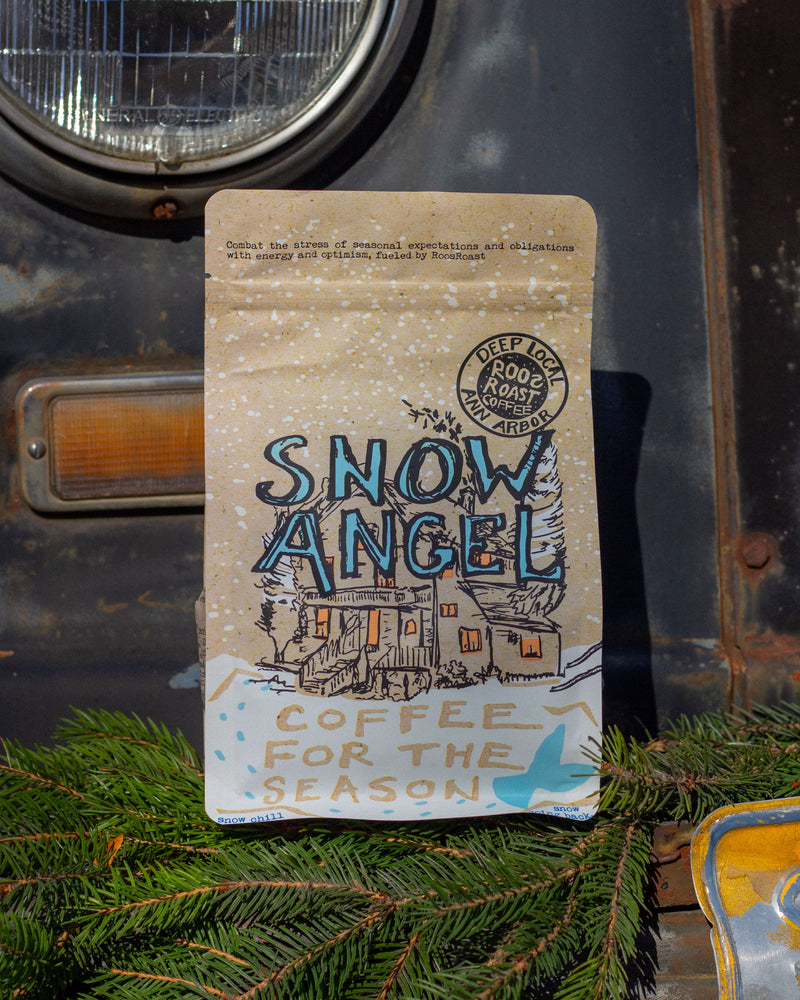 GENERAL ELECTRIC
Combat the stress of seasonal expectations and obligations
with energy and optimism, fueled by RoosRoast
DEEP LOCAL
ROOS
ROAST
COFFEE
ANN ARBOR
SNOW
ANGEL
COFFEE
FOR THE
SEASON
snow chill
snow
back